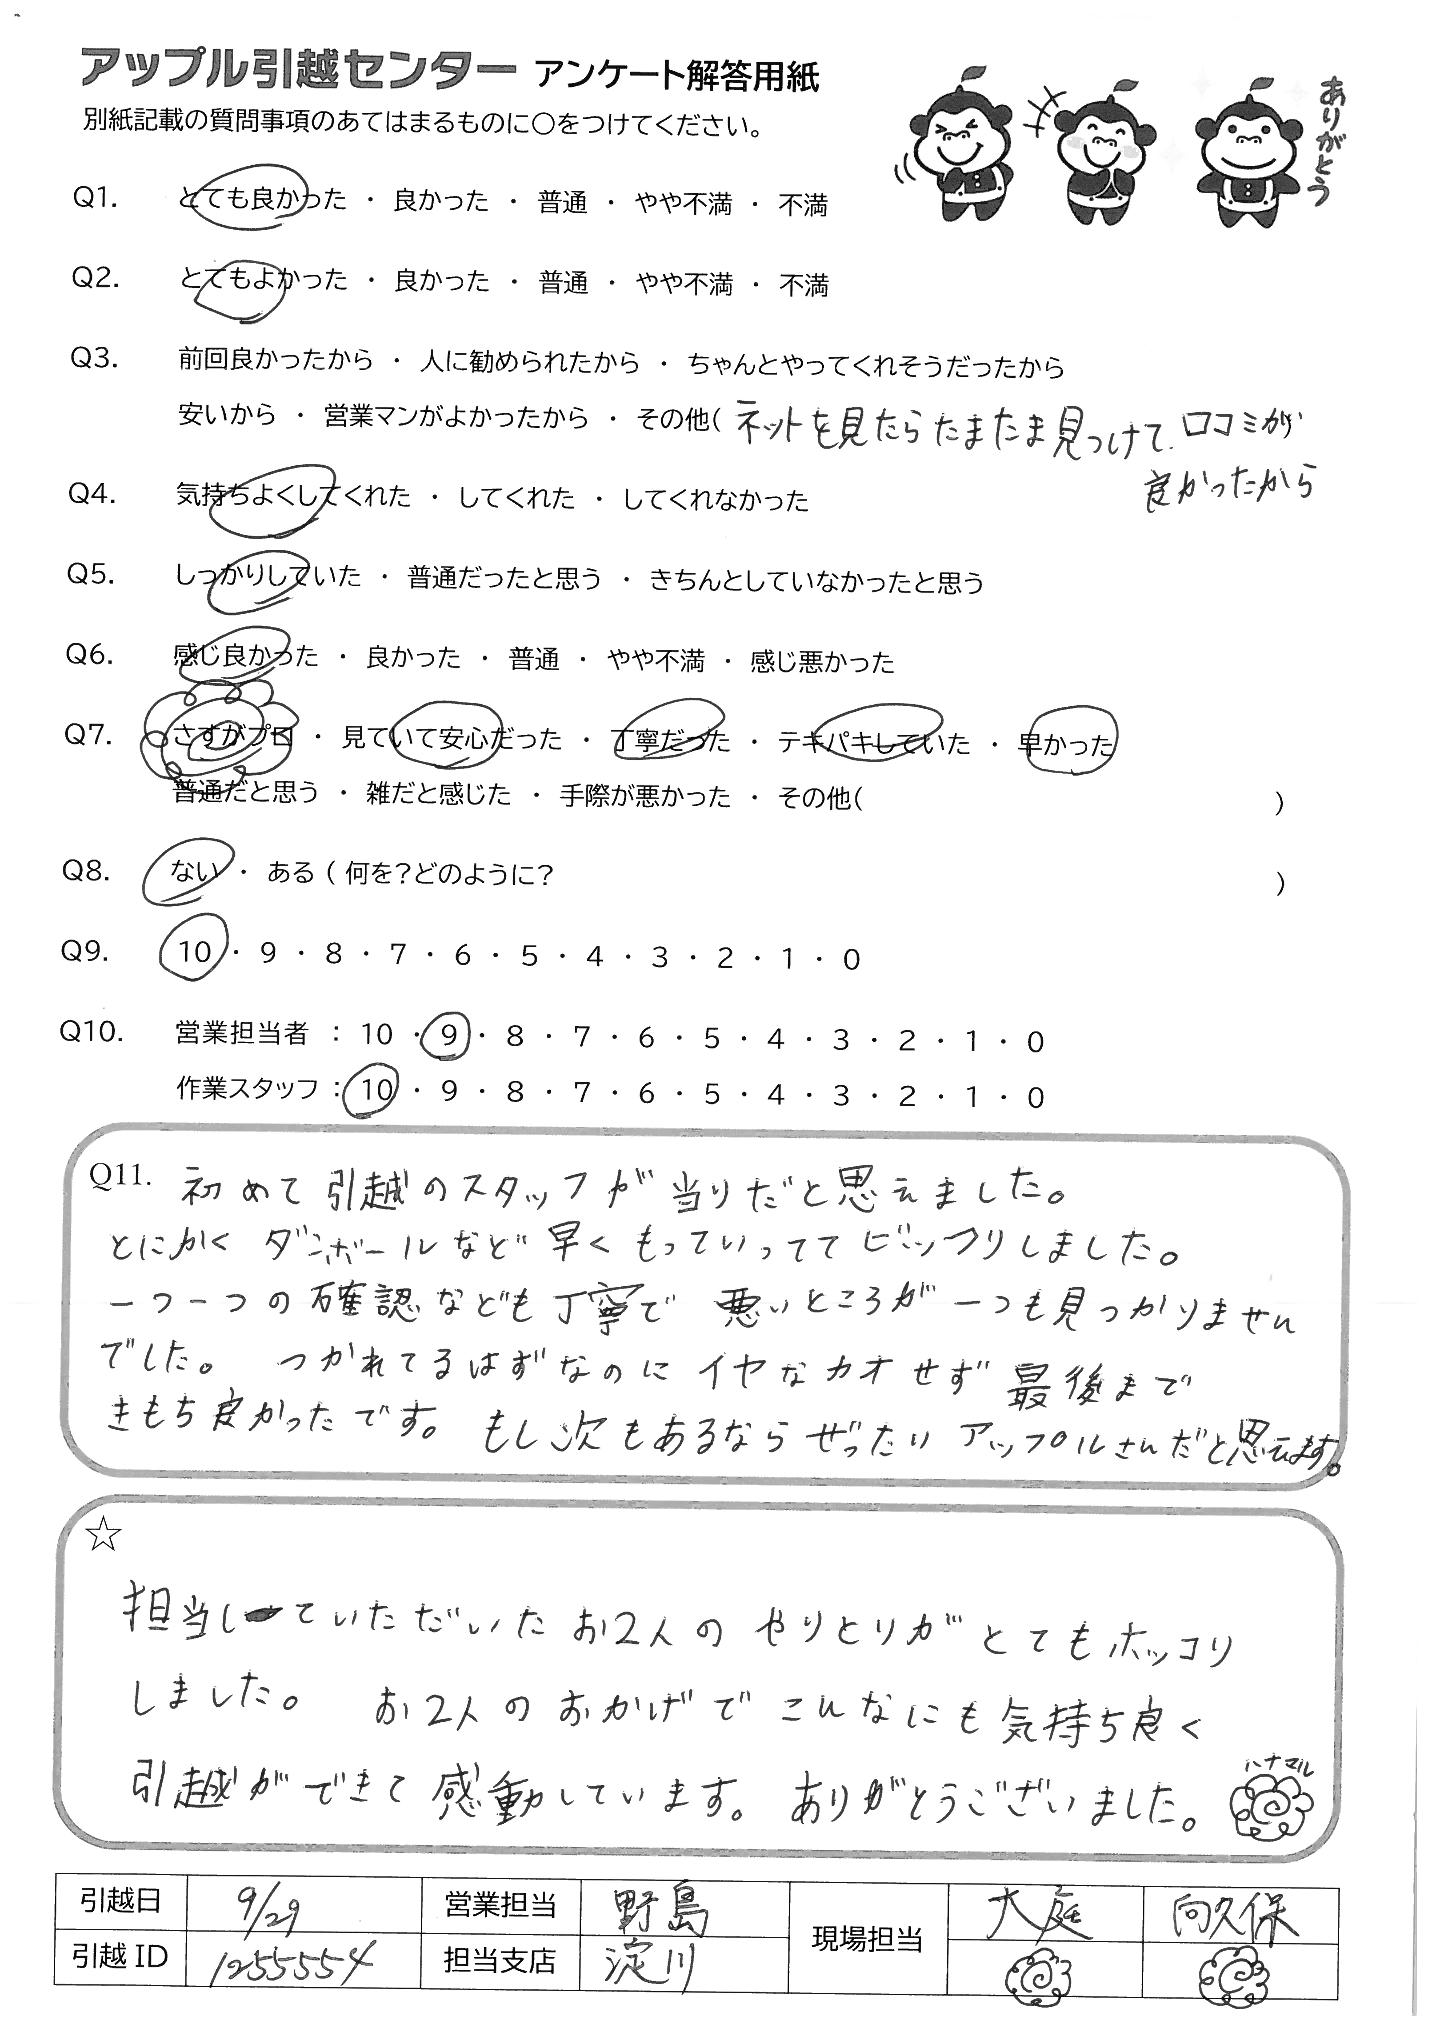 アップル引越センター アンケート解答用紙
別紙記載の質問事項のあてはまるものに○をつけてください。
ありがとう
Q1. とても良かった ・ 良かった ・ 普通 ・ やや不満 ・ 不満
Q2. とてもよかった ・ 良かった ・ 普通 ・ やや不満 ・ 不満
Q3. 前回良かったから ・ 人に勧められたから ・ ちゃんとやってくれそうだったから
安いから ・ 営業マンがよかったから ・ その他( ネットを見たらたまたま見つけて、口コミが
良かったから
Q4. 気持ちよくしてくれた ・ してくれた ・ してくれなかった
Q5. しっかりしていた ・ 普通だったと思う ・ きちんとしていなかったと思う
Q6. 感じ良かった ・ 良かった ・ 普通 ・ やや不満 ・ 感じ悪かった
Q7. さすがプロ ・ 見ていて安心だった ・ 丁寧だった ・ テキパキしていた ・ 早かった
普通だと思う ・ 雑だと感じた ・ 手際が悪かった ・ その他( )
Q8. ない ・ ある ( 何を?どのように? )
Q9. 10 ・ 9 ・ 8 ・ 7 ・ 6 ・ 5 ・ 4 ・ 3 ・ 2 ・ 1 ・ 0
Q10. 営業担当者 : 10 ・ 9 ・ 8 ・ 7 ・ 6 ・ 5 ・ 4 ・ 3 ・ 2 ・ 1 ・ 0
作業スタッフ : 10 ・ 9 ・ 8 ・ 7 ・ 6 ・ 5 ・ 4 ・ 3 ・ 2 ・ 1 ・ 0
Q11. 初めて引越のスタッフが当りだと思えました。
とにかくダンボールなど早くもっていっててビックリしました。
一つ一つの確認なども丁寧で悪いところが一つも見つかりません
でした。 つかれてるはずなのにイヤなカオせず最後まで
きもち良かったです。 もし次もあるならぜったいアップルさんだと思えます。
☆
担当していただいたお2人のやりとりがとてもホッコリ
しました。 お2人のおかげでこんなにも気持ち良く
引越ができて感動しています。ありがとうございました。
ハナマル
引越日 9/29 営業担当 野島 現場担当 大庭 向久保
引越ID 1255554 担当支店 淀川